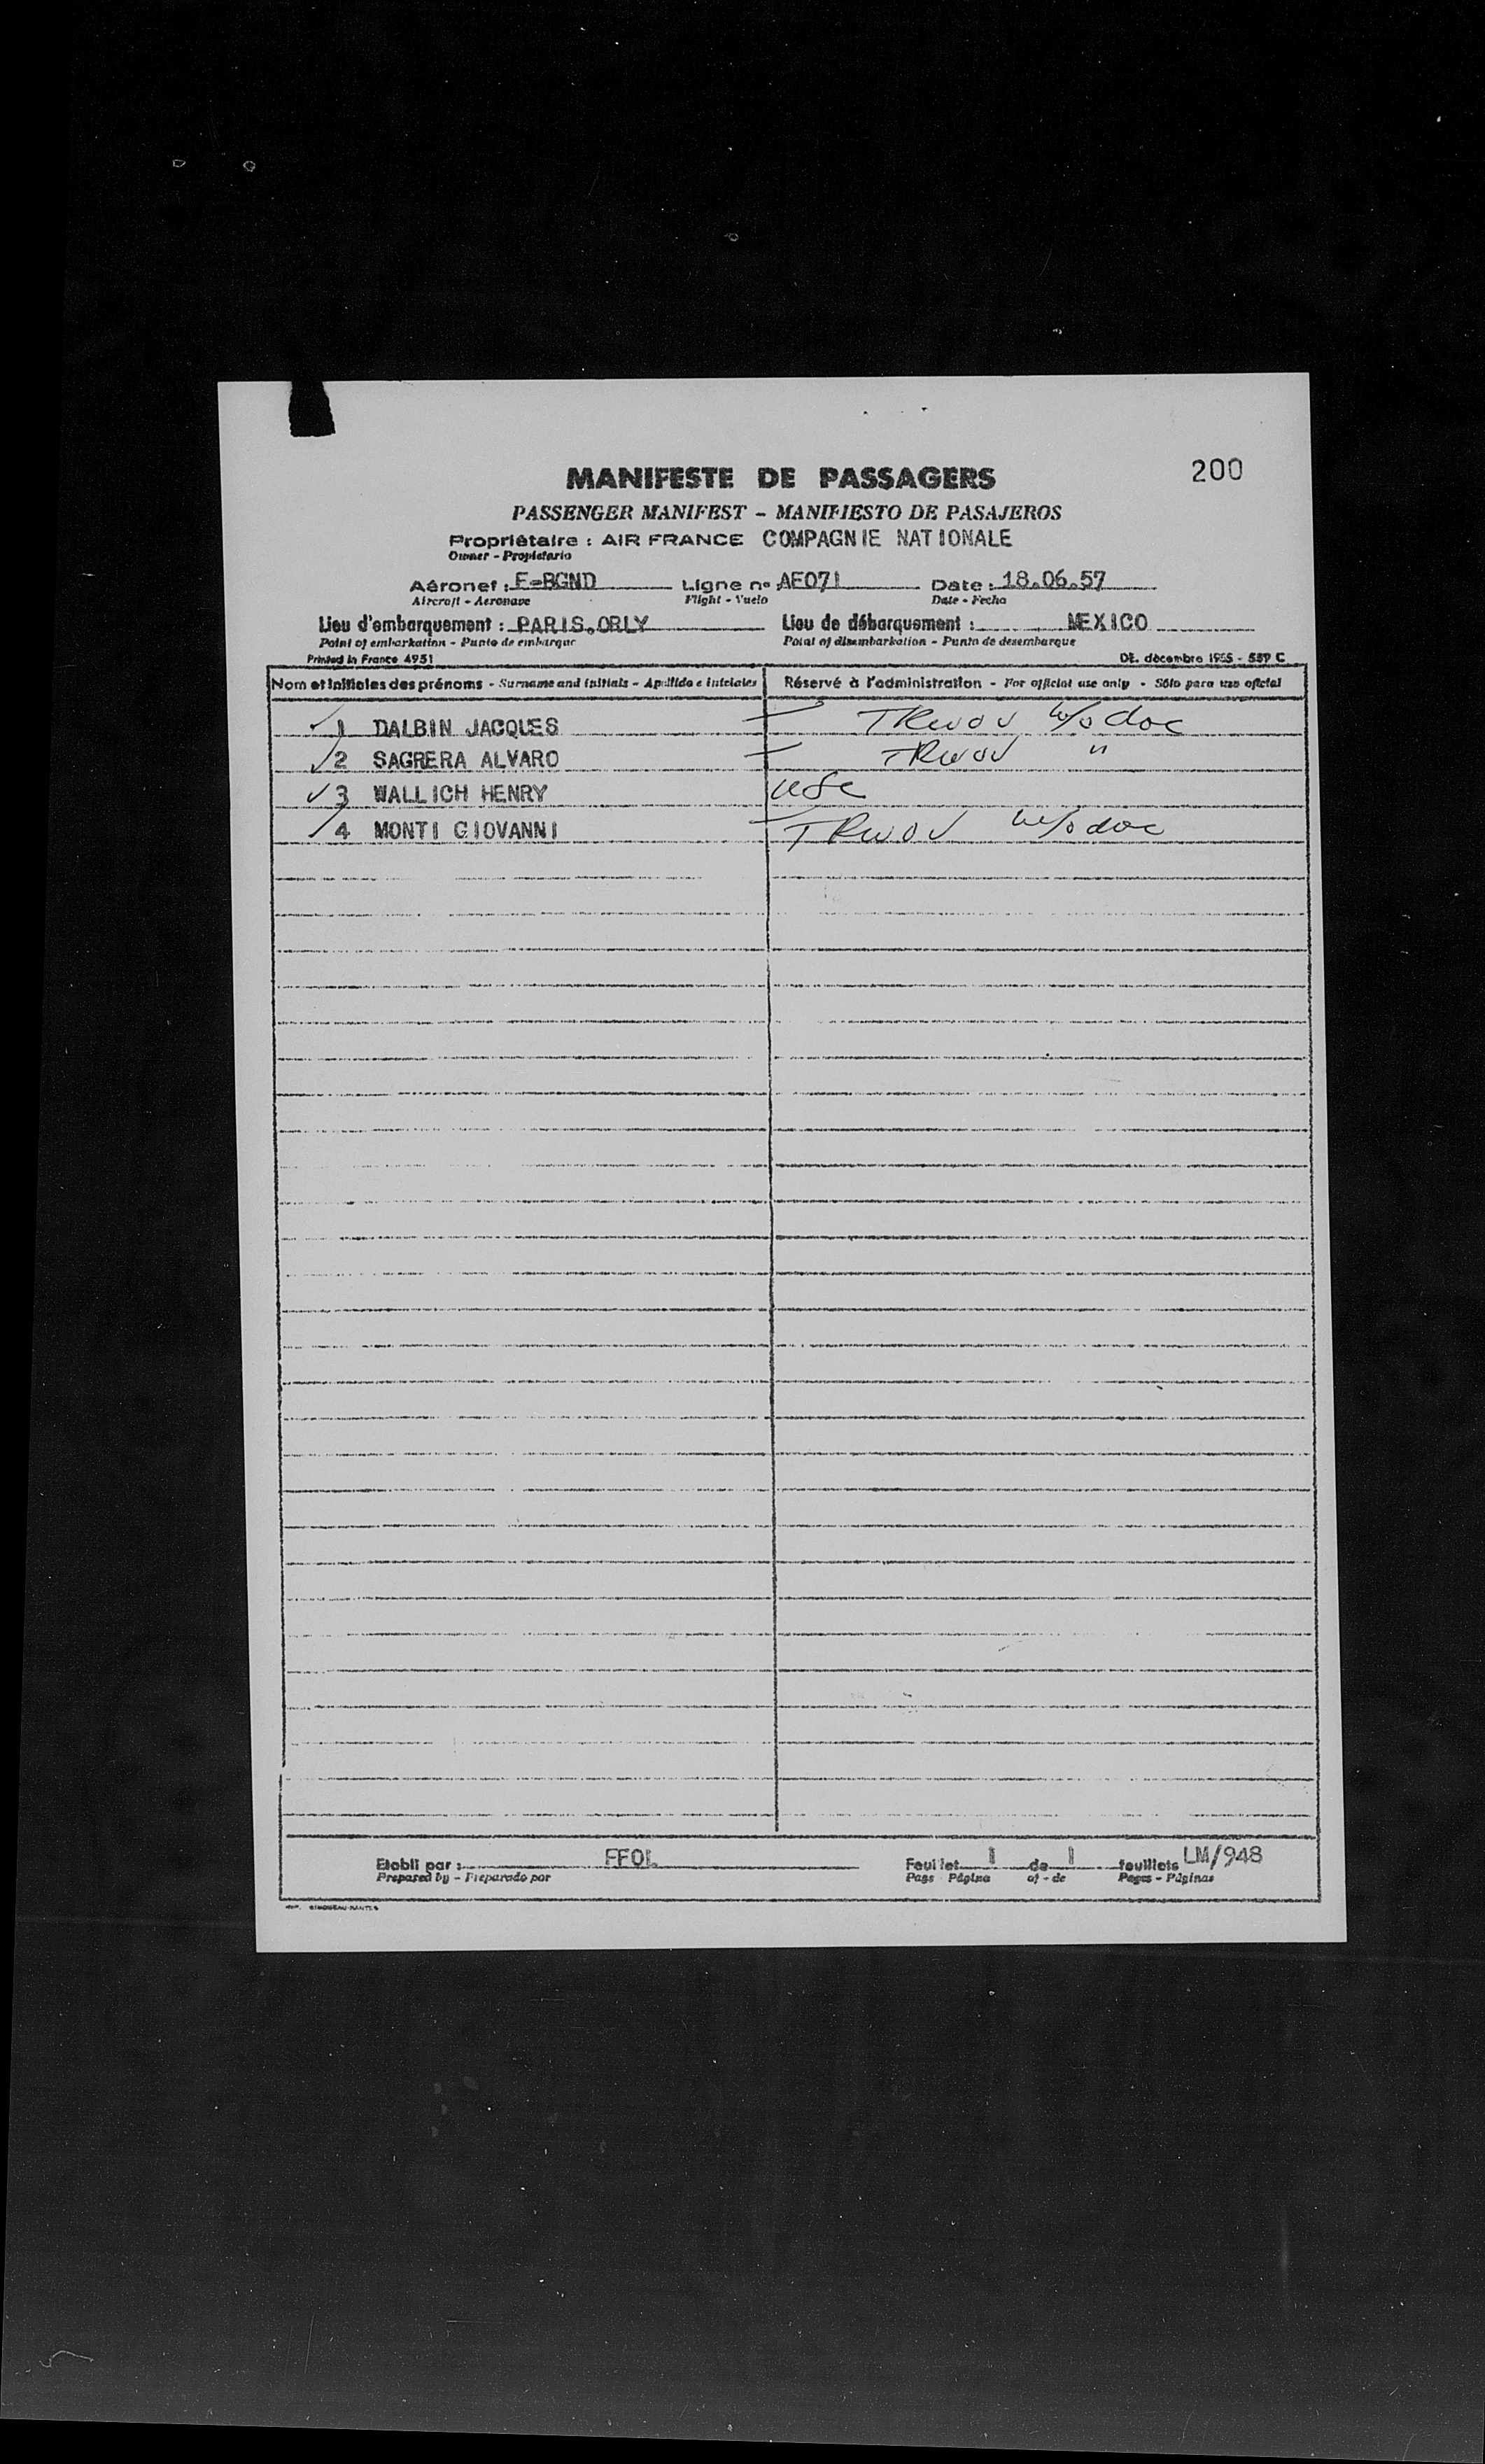 200
MANIFESTE DE PASSAGERS
PASSENGER MANIFEST - MANIFIESTO DE PASAJEROS
Propriétaire : AIR FRANCE COMPAGNIE NATIONALE
Owner - Propietario
Aéronef : F-BGND Ligne nº AF071 Date : 18.06.57
Aircraft - Aeronave Flight - Vuelo Date - Fecha
Lieu d'embarquement : PARIS.ORLY Lieu de débarquement : MEXICO
Point of embarkation - Punto de embarque Point of disembarkation - Punto de desembarque
Printed in France 4951 DE. décembre 1955 - 559 C
Nom et initiales des prénoms - Surname and initials - Apellido e iniciales Réservé à l'administration - For official use only - Sólo para uso oficial
1 DALBIN JACQUES TRWOV w/o doc
2 SAGRERA ALVARO TRWOV "
3 WALLICH HENRY USC
4 MONTI GIOVANNI TRWOV w/o doc
Etabli par : FFOL Feuillet 1 de 1 feuillets LM/948
Prepared by - Preparado por Page - Página of - de Pages - Páginas